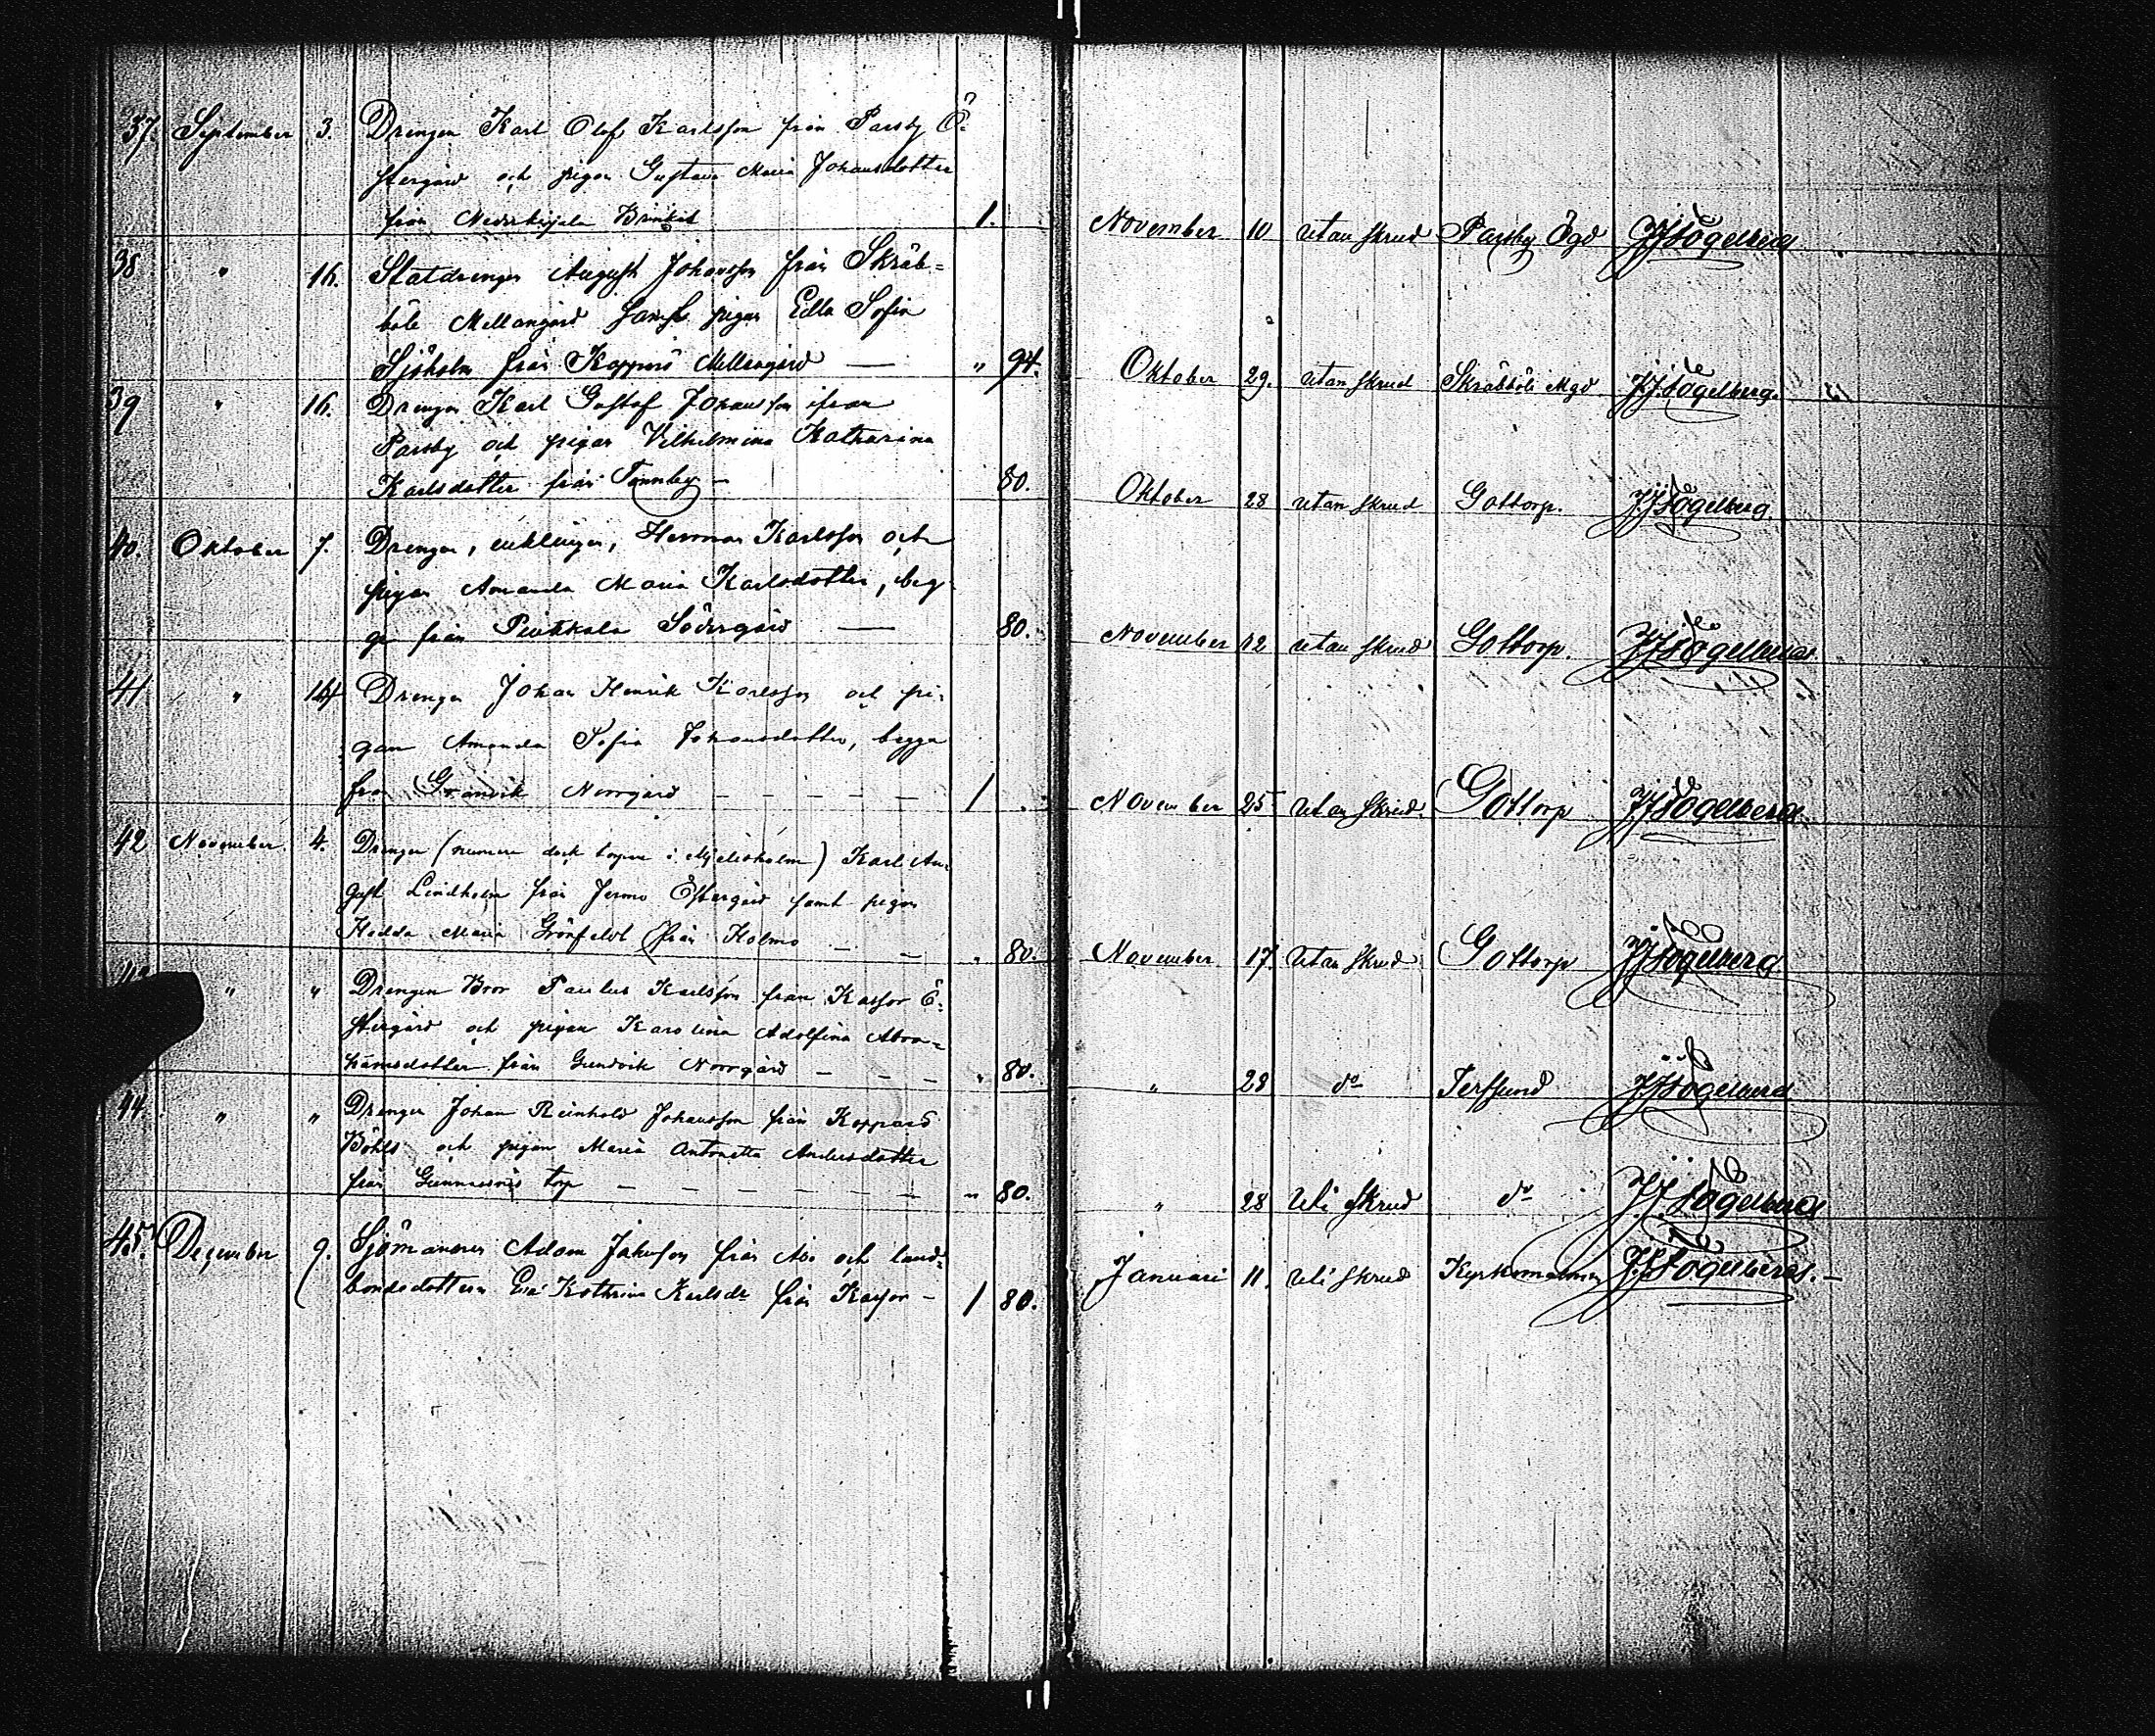 37. September 3. Drengen Karl Olof Karlsson från Parsby Ö-
stergård och pigan Gustava Maria Johansdotter
från Brinkas 1. November 10 utan skrud Parsby Ögd JJ Fogelberg
38 " 16. Statdrengen August Johansson från Skräb-
böle Mellangård samt pigan Edla Sofia
Sjöholm från Koppard Mellangård — " 94. Oktober 29. utan skrud Skräbböle Mgd JJ Fogelberg.
39 " 16. Drengen Karl Gustaf Johansson ifrån
Parsby och pigan Vilhelmina Katharina
Karlsdotter från Tennby — 80. Oktober 28 utan skrud Gottorp. JJ Fogelberg.
40. Oktober 7. Drengen, enklingen, Herman Karlsson och
pigan Amanda Maria Karlsdotter, beg-
ge från Södergård — 80. November 12 utan skrud Gottorp. JJ Fogelberg
41 " 14 Drengen Johan Henrik Karlsson och pi-
gan Amanda Sofia Johansdotter, begge
från Norrgård — — — — — 1 . November 25 utan skrud. Gottorp JJ Fogelberg
42 November 4. Drengen (numera dock i ) Karl Au-
gust Lindholm från Jermo Östergård samt pigan
Hedda Maria Grönfeldt från Kolmo — — " 80. November 17 utan skrud Gottorp JJ Fogelberg
" " Drengen Bror Paulus Karlsson från Karsor Ö-
stergård och pigan Karolina Adolfina Abra-
hamsdotter från Gundvik Norrgård — — — " 80. " 28 do Terssund JJ Fogelberg
44. " " Drengen Johan Reinhold Johansson från Koppard
Böhls och pigan Maria Antonetta Andersdotter
från torp — — — — — — " 80. " 28 Uti skrud do J.J. Fogelberg
45. December 9. Sjömannen Adam Jakobsson från Åbo och land-
bondedottern Eva Kathrina Karlsdr från Karsor — 1 80. Januari 11. Uti skrud Kyrkomalmen J.J. Fogelberg. —